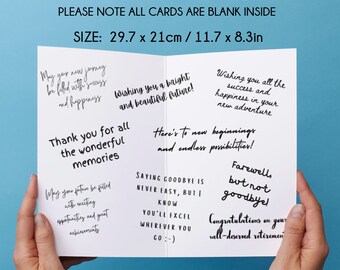 PLEASE NOTE ALL CARDS ARE BLANK INSIDE
SIZE: 29.7 x 21cm / 11.7 x 8.3in
May your new journey
be filled with success
and happiness
Wishing you a bright
and beautiful future!
Wishing you all the
success and
happiness in your
new adventure
Thank you for all
the wonderful
memories
Here's to new beginnings
and endless possibilities!
May your future be filled
with exciting
opportunities and great
achievements
SAYING GOODBYE IS
NEVER EASY, BUT I
KNOW
YOU'LL EXCEL
WHEREVER YOU
GO :-)
Farewell
but not
goodbye!
Congratulations on your
well-deserved retirement